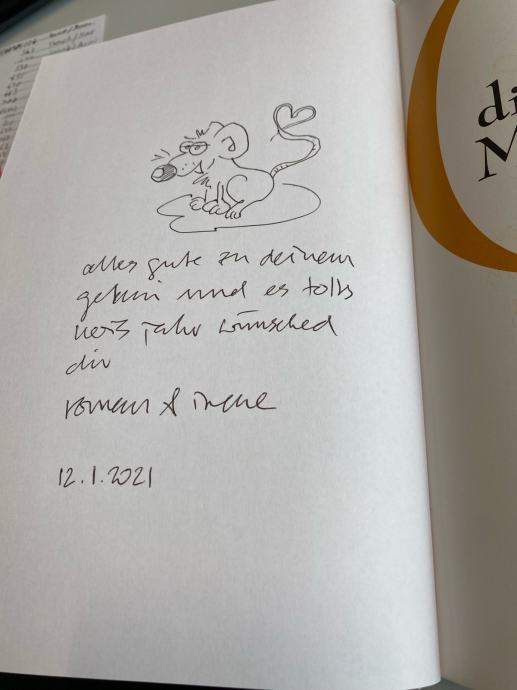 alles gute zu deinem
und es tolls
jahr wünsched
dir
roman & irene
12.1.2021
di
M